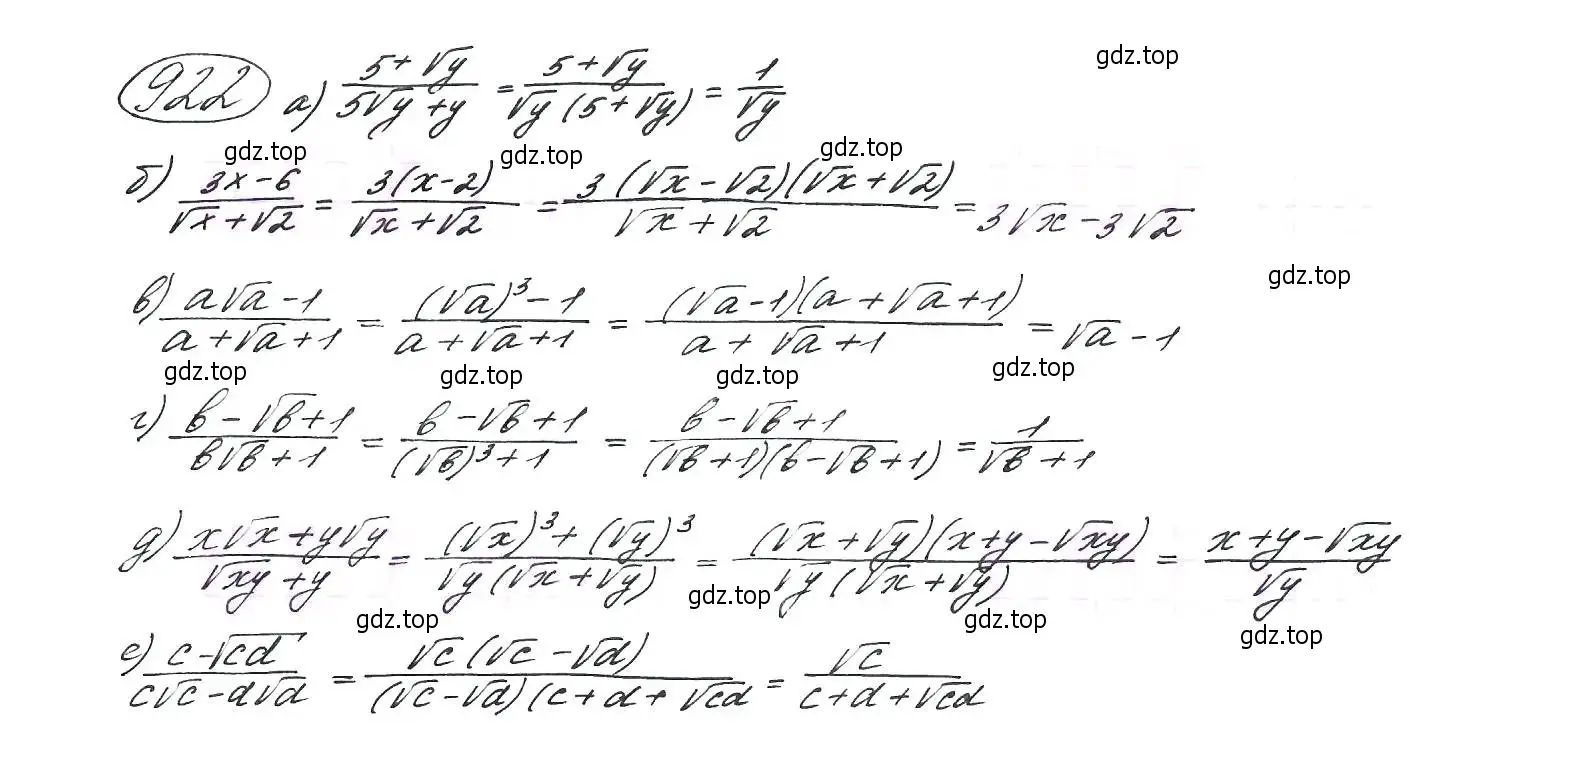 gdz.top
922 а) (5+√y)/(5√y+y) = (5+√y)/(√y(5+√y)) = 1/√y
gdz.top gdz.top gdz.top
б) (3x-6)/(√x+√2) = 3(x-2)/(√x+√2) = 3(√x-√2)(√x+√2)/(√x+√2) = 3√x-3√2
gdz.top
в) (a√a-1)/(a+√a+1) = ((√a)³-1)/(a+√a+1) = (√a-1)(a+√a+1)/(a+√a+1) = √a-1
gdz.top gdz.top gdz.top gdz.top
г) (b-√b+1)/(b√b+1) = (b-√b+1)/((√b)³+1) = (b-√b+1)/((√b+1)(b-√b+1)) = 1/(√b+1)
д) (x√x+y√y)/(√xy+y) = ((√x)³+(√y)³)/(√y(√x+√y)) = (√x+√y)(x+y-√xy)/(√y(√x+√y)) = (x+y-√xy)/√y
gdz.top gdz.top gdz.top gdz.top
е) (c-√cd)/(c√c-d√d) = √c(√c-√d)/((√c-√d)(c+d+√cd) = √c/(c+d+√cd)